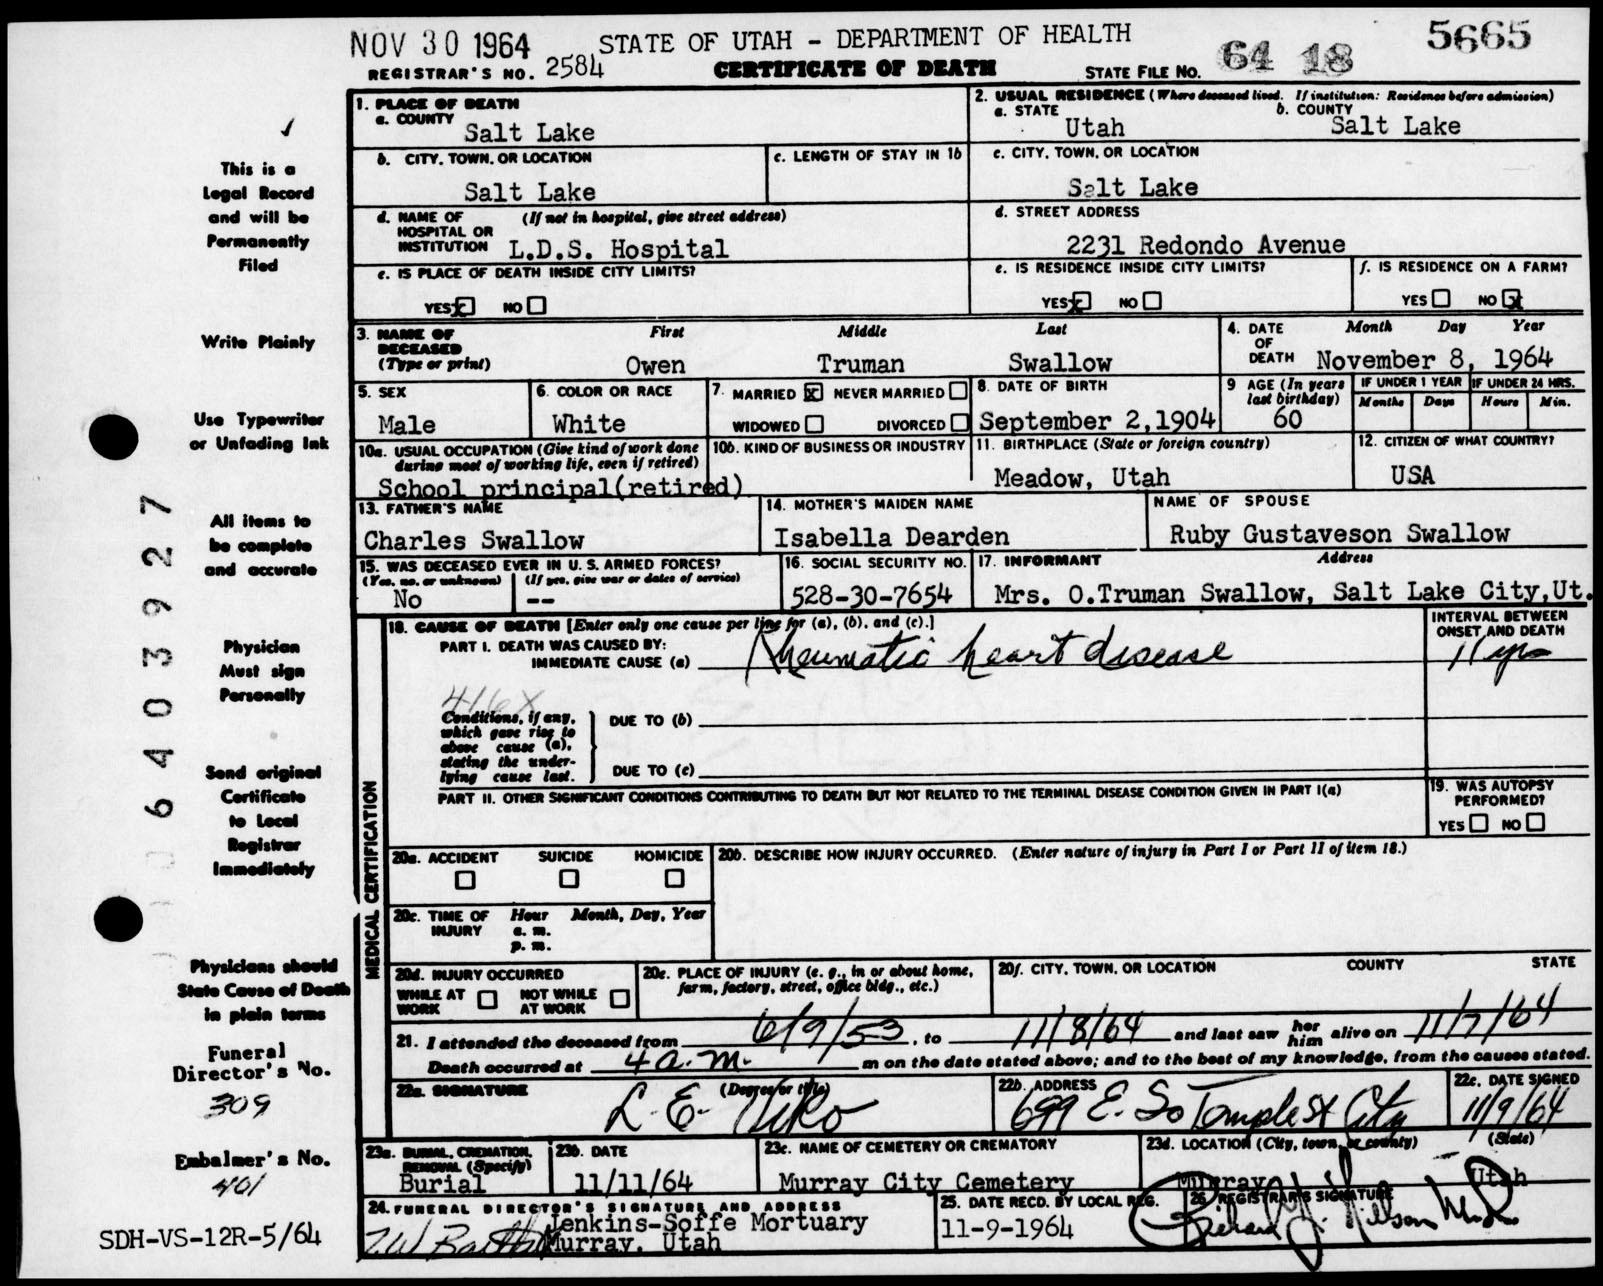 NOV 30 1964 STATE OF UTAH - DEPARTMENT OF HEALTH 5665
REGISTRAR'S NO. 2584 CERTIFICATE OF DEATH STATE FILE NO. 64 18
This is a
Legal Record
and will be
Permanently
Filed
Write Plainly
Use Typewriter
or Unfading Ink
All items to
be complete
and accurate
Physician
Must sign
Personally
Send original
Certificate
to Local
Registrar
Immediately
Physicians should
State Cause of Death
in plain terms
Funeral
Director's No.
309
Embalmer's No.
401
SDH-VS-12R-5/64
6403927
1. PLACE OF DEATH
a. COUNTY
Salt Lake
2. USUAL RESIDENCE (Where deceased lived. If institution: Residence before admission)
a. STATE b. COUNTY
Utah Salt Lake
b. CITY, TOWN, OR LOCATION c. LENGTH OF STAY IN 1b
Salt Lake
c. CITY, TOWN, OR LOCATION
Salt Lake
d. NAME OF (If not in hospital, give street address)
HOSPITAL OR
INSTITUTION L.D.S. Hospital
d. STREET ADDRESS
2231 Redondo Avenue
e. IS PLACE OF DEATH INSIDE CITY LIMITS?
YES x NO
e. IS RESIDENCE INSIDE CITY LIMITS? f. IS RESIDENCE ON A FARM?
YES x NO YES NO x
3. NAME OF First Middle Last
DECEASED
(Type or print) Owen Truman Swallow
4. DATE Month Day Year
OF
DEATH November 8, 1964
5. SEX 6. COLOR OR RACE 7. MARRIED x NEVER MARRIED
Male White WIDOWED DIVORCED
8. DATE OF BIRTH
September 2,1904
9 AGE (In years IF UNDER 1 YEAR IF UNDER 24 HRS.
last birthday) Months Days Hours Min.
60
10a. USUAL OCCUPATION (Give kind of work done
during most of working life, even if retired)
School principal(retired)
10b. KIND OF BUSINESS OR INDUSTRY
11. BIRTHPLACE (State or foreign country)
Meadow, Utah
12. CITIZEN OF WHAT COUNTRY?
USA
13. FATHER'S NAME
Charles Swallow
14. MOTHER'S MAIDEN NAME
Isabella Dearden
NAME OF SPOUSE
Ruby Gustaveson Swallow
15. WAS DECEASED EVER IN U. S. ARMED FORCES?
(Yes, no, or unknown) (If yes, give war or dates of service)
No --
16. SOCIAL SECURITY NO.
528-30-7654
17. INFORMANT Address
Mrs. O.Truman Swallow, Salt Lake City,Ut.
MEDICAL CERTIFICATION
18. CAUSE OF DEATH [Enter only one cause per line for (a), (b), and (c).]
PART I. DEATH WAS CAUSED BY:
IMMEDIATE CAUSE (a) Rheumatic heart disease
INTERVAL BETWEEN
ONSET AND DEATH
11 yrs
416X
Conditions, if any,
which gave rise to
above cause (a),
stating the under-
lying cause last.
DUE TO (b)
DUE TO (c)
PART II. OTHER SIGNIFICANT CONDITIONS CONTRIBUTING TO DEATH BUT NOT RELATED TO THE TERMINAL DISEASE CONDITION GIVEN IN PART I(a)
19. WAS AUTOPSY
PERFORMED?
YES NO
20a. ACCIDENT SUICIDE HOMICIDE
20b. DESCRIBE HOW INJURY OCCURRED. (Enter nature of injury in Part I or Part II of item 18.)
20c. TIME OF Hour Month, Day, Year
INJURY a. m.
p. m.
20d. INJURY OCCURRED
WHILE AT NOT WHILE
WORK AT WORK
20e. PLACE OF INJURY (e. g., in or about home,
farm, factory, street, office bldg., etc.)
20f. CITY, TOWN, OR LOCATION COUNTY STATE
21. I attended the deceased from 6/9/53, to 11/8/64 and last saw her him alive on 11/7/64
Death occurred at 4 a.m. m on the date stated above; and to the best of my knowledge, from the causes stated.
22a. SIGNATURE (Degree or title)
L. E. Viko
22b. ADDRESS
699 E. So Temple St City
22c. DATE SIGNED
11/9/64
23a. BURIAL, CREMATION,
REMOVAL (Specify)
Burial
23b. DATE
11/11/64
23c. NAME OF CEMETERY OR CREMATORY
Murray City Cemetery
23d. LOCATION (City, town, or county) (State)
Murray Utah
24. FUNERAL DIRECTOR'S SIGNATURE AND ADDRESS
Jenkins-Soffe Mortuary
Murray, Utah
25. DATE RECD. BY LOCAL REG.
11-9-1964
26. REGISTRAR'S SIGNATURE